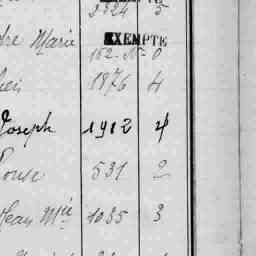 2224 5
dre Marie EXEMPTE
162 N° 0
1876 4
Joseph 1912 4
531 2
Jean Mie 1035 3